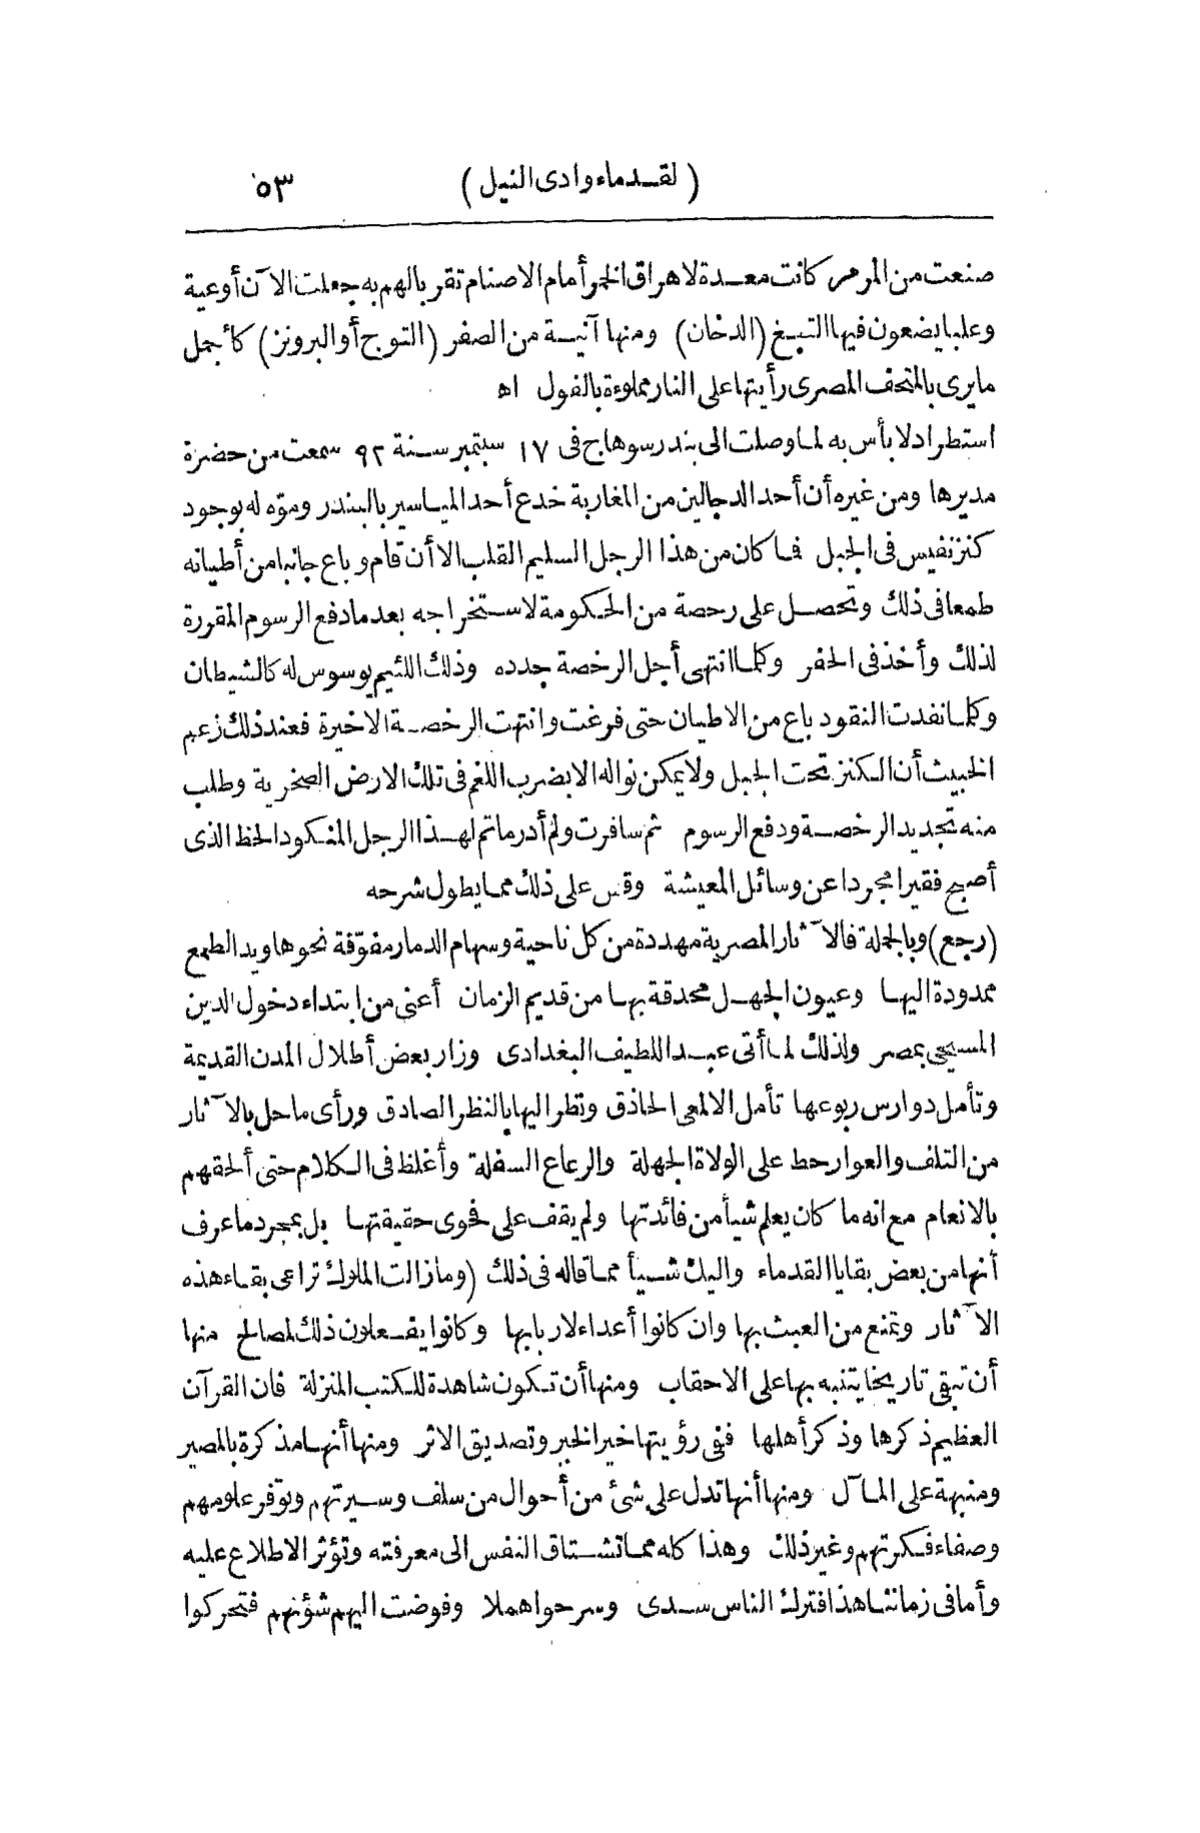 (لقدماء وادى النيل) ٥٣
صنعت من المرمر كانت معدة لاهراق الخمر أمام الاصنام تقربا لهم به جعلت الآن أوعية
وعلبا يضعون فيها التبغ (الدخان) ومنها آنية من الصفر (التوج أو البرونز) كأجمل
مايرى بالمتحف المصرى رأيتها على النار مملوءة بالفول اه
استطراد لا بأس به لما وصلت الى بندر سوهاج فى ١٧ سبتمبر سنة ٩٢ سمعت من حضرة
مديرها ومن غيره أن أحد الدجالين من المغاربة خدع أحد المياسير بالبندر وموّه له بوجود
كنز نفيس فى الجبل فما كان من هذا الرجل السليم القلب الا أن قام وباع جانبا من أطيانه
طمعا فى ذلك وتحصل على رحصة من الحكومة لاستخراجه بعد مادفع الرسوم المقررة
لذلك وأخذ فى الحفر وكلما انتهى أجل الرخصة جدده وذلك اللئيم يوسوس له كالشيطان
وكلما نفدت النقود باع من الاطيان حتى فرغت وانتهت الرخصة الاخيرة فعند ذلك زعم
الخبيث أن الكنز تحت الجبل ولا يمكن نواله الا بضرب اللغم فى تلك الارض الصخرية وطلب
منه تجديد الرخصة ودفع الرسوم ثم سافرت ولم أدر ماتم لهذا الرجل المنكود الحظ الذى
أصبح فقيرا مجردا عن وسائل المعيشة وقس على ذلك مما يطول شرحه
(رجع) وبالجملة فالآثار المصرية مهددة من كل ناحية وسهام الدمار مفوّقة نحوها ويد الطمع
ممدودة اليها وعيون الجهل محدقة بها من قديم الزمان أعنى من ابتداء دخول الدين
المسيحى بمصر ولذلك لما أتى عبد اللطيف البغدادى وزار بعض أطلال المدن القديمة
وتأمل دوارس ربوعها تأمل الالمعى الحاذق ونظر اليها بالنظر الصادق ورأى ماحل بالآثار
من التلف والعوار حط على الولاة الجهلة والرعاع السفلة وأغلظ فى الكلام حتى ألحقهم
بالانعام مع انه ما كان يعلم شيأ من فائدتها ولم يقف على فحوى حقيقتها بل بمجرد ما عرف
أنها من بعض بقايا القدماء واليك شيأ مما قاله فى ذلك (ومازالت الملوك تراعى بقاء هذه
الآثار وتمنع من العبث بها وان كانوا أعداء لاربابها وكانوا يفعلون ذلك لمصالح منها
أن تبقى تاريخا يتنبه بها على الاحقاب ومنها أن تكون شاهدة للكتب المنزلة فان القرآن
العظيم ذكرها وذكر أهلها ففى رؤيتها خبر الخبر وتصديق الاثر ومنها أنها مذكرة بالمصير
ومنبهة على المآل ومنها أنها تدل على شئ من أحوال من سلف وسيرتهم وتوفر علومهم
وصفاء فكرتهم وغير ذلك وهذا كله مما تشتاق النفس الى معرفته وتؤثر الاطلاع عليه
وأما فى زماننا هذا فترك الناس سدى وسرحوا هملا وفوضت اليهم شؤنهم فتحركوا